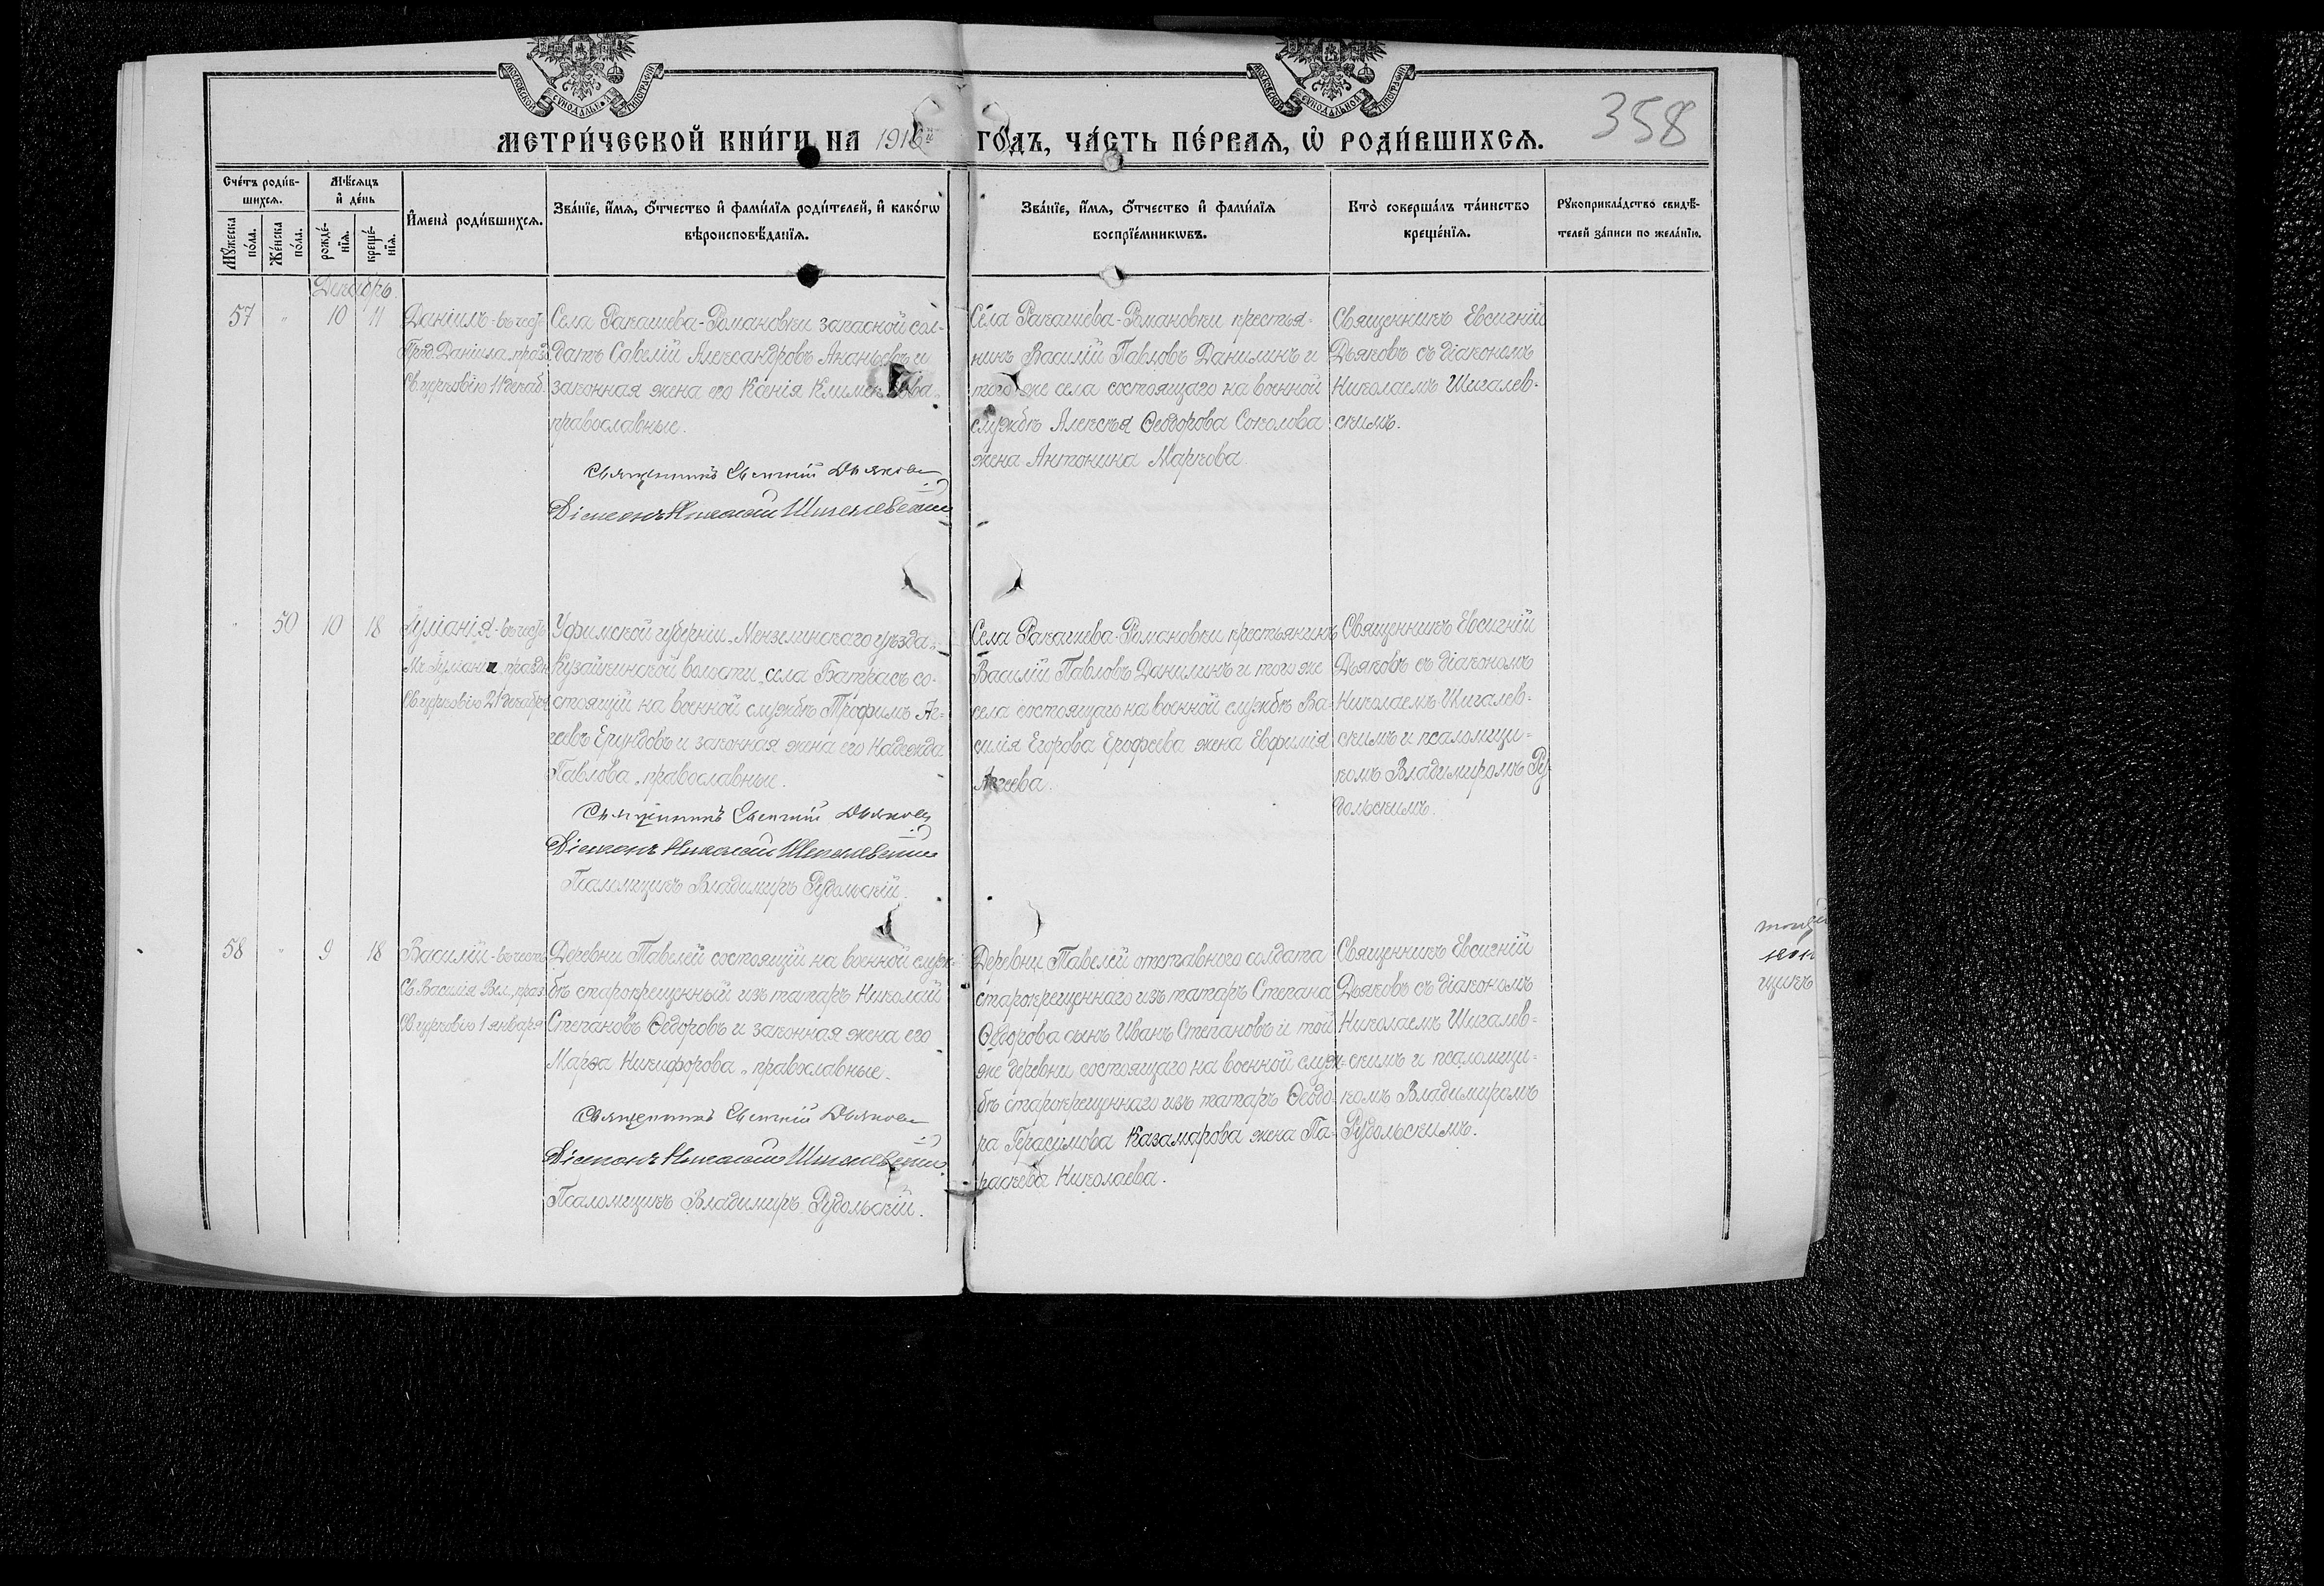 МОСКОВСКОЙ СѴНОДАЛЬНОЙ ТИПОГРАФІИ
МОСКОВСКОЙ СѴНОДАЛЬНОЙ ТИПОГРАФІИ
358
МЕТРИ́ЧЕСКОЙ КНИ́ГИ НА 1916й ГО́ДЪ, ЧА́СТЬ ПЕ́РВАѦ, Ѡ҆ РОДИ́ВШИХСѦ.
Сче́тъ роди́в-
шихсѧ.
Мꙋ́жеска по́ла.
Же́нска по́ла.
Мѣ́сѧцъ
и҆ де́нь
рожде́-
нїѧ.
креще́-
нїѧ.
И҆мена̀ роди́вшихсѧ.
Зва́нїе, и҆́мѧ, ѻ҆́тчество и҆ фами́лїѧ роди́телей, и҆ како́гѡ
вѣроисповѣ́данїѧ.
Зва́нїе, и҆́мѧ, ѻ҆́тчество и҆ фами́лїѧ
воспрїе́мникѡвъ.
Кто̀ соверша́лъ та́инство
креще́нїѧ.
Рꙋкоприкла́дство свидѣ́-
телей за́писи по жела́нїю.
Декабрь.
57 " 10 11
Даніилъ - въ честь
Прд. Даніила, празд.
Св. церковію 11 декаб.
Села Ракашева-Романовки запасной сол-
датъ Савелій Александровъ Ананьевъ и
законная жена его Ксенія
православные.
Священникъ Евсигній Дьяковъ
Діаконъ Николай Шигалевскій
Села Ракашева-Романовки крестья-
нинъ Василій Павловъ Данилинъ и
того же села состоящаго на военной
службѣ Алексѣя Ѳеодорова Соколова
жена Антонина Маркова.
Священникъ Евсигній
Дьяковъ съ діакономъ
Николаемъ Шигалев-
скимъ.
" 50 10 18
Іуліанія - въ честь
Мц. Іуліаніи, праздн.
Св. церковію 21 декабря
Уфимской губерніи, Мензелинскаго уѣзда,
Кузайкинской волости, села Батрасъ со-
стоящій на военной службѣ Трофимъ Аг-
геевъ Ерундовъ и законная жена его Надежда
Павлова, православные.
Священникъ Евсигній Дьяковъ
Діаконъ Николай Шигалевскій
Псаломщикъ Владимиръ Рудольскій.
Села Ракашева-Романовки крестьянинъ
Василій Павловъ Данилинъ и того же
села состоящаго на военной службѣ Ва-
силія Егорова Ерофеева жена Евфимія
Аггеева.
Священникъ Евсигній
Дьяковъ съ діакономъ
Николаемъ Шигалев-
скимъ и псаломщи-
комъ Владимиромъ Ру-
дольскимъ.
58 " 9 18
Василій - въ честь
Св. Василія Вел., праз.
Св. церковію 1 января
Деревни Тавелей состоящій на военной служ-
бѣ старокрещенный изъ татаръ Николай
Степановъ Ѳедоровъ и законная жена его
Марѳа Никифорова, православные.
Священникъ Евсигній Дьяковъ
Діаконъ Николай Шигалевскій
Псаломщикъ Владимиръ Рудольскій.
Деревни Тавелей отставного солдата
старокрещеннаго изъ татаръ Степана
Ѳедорова сынъ Иванъ Степановъ и той
же деревни состоящаго на военной служ-
бѣ старокрещеннаго изъ татаръ Ѳеодо-
ра Герасимова Казамарова жена Па-
раскева Николаева.
Священникъ Евсигній
Дьяковъ съ діакономъ
Николаемъ Шигалев-
скимъ и псаломщи-
комъ Владимиромъ
Рудольскимъ.
щикъ